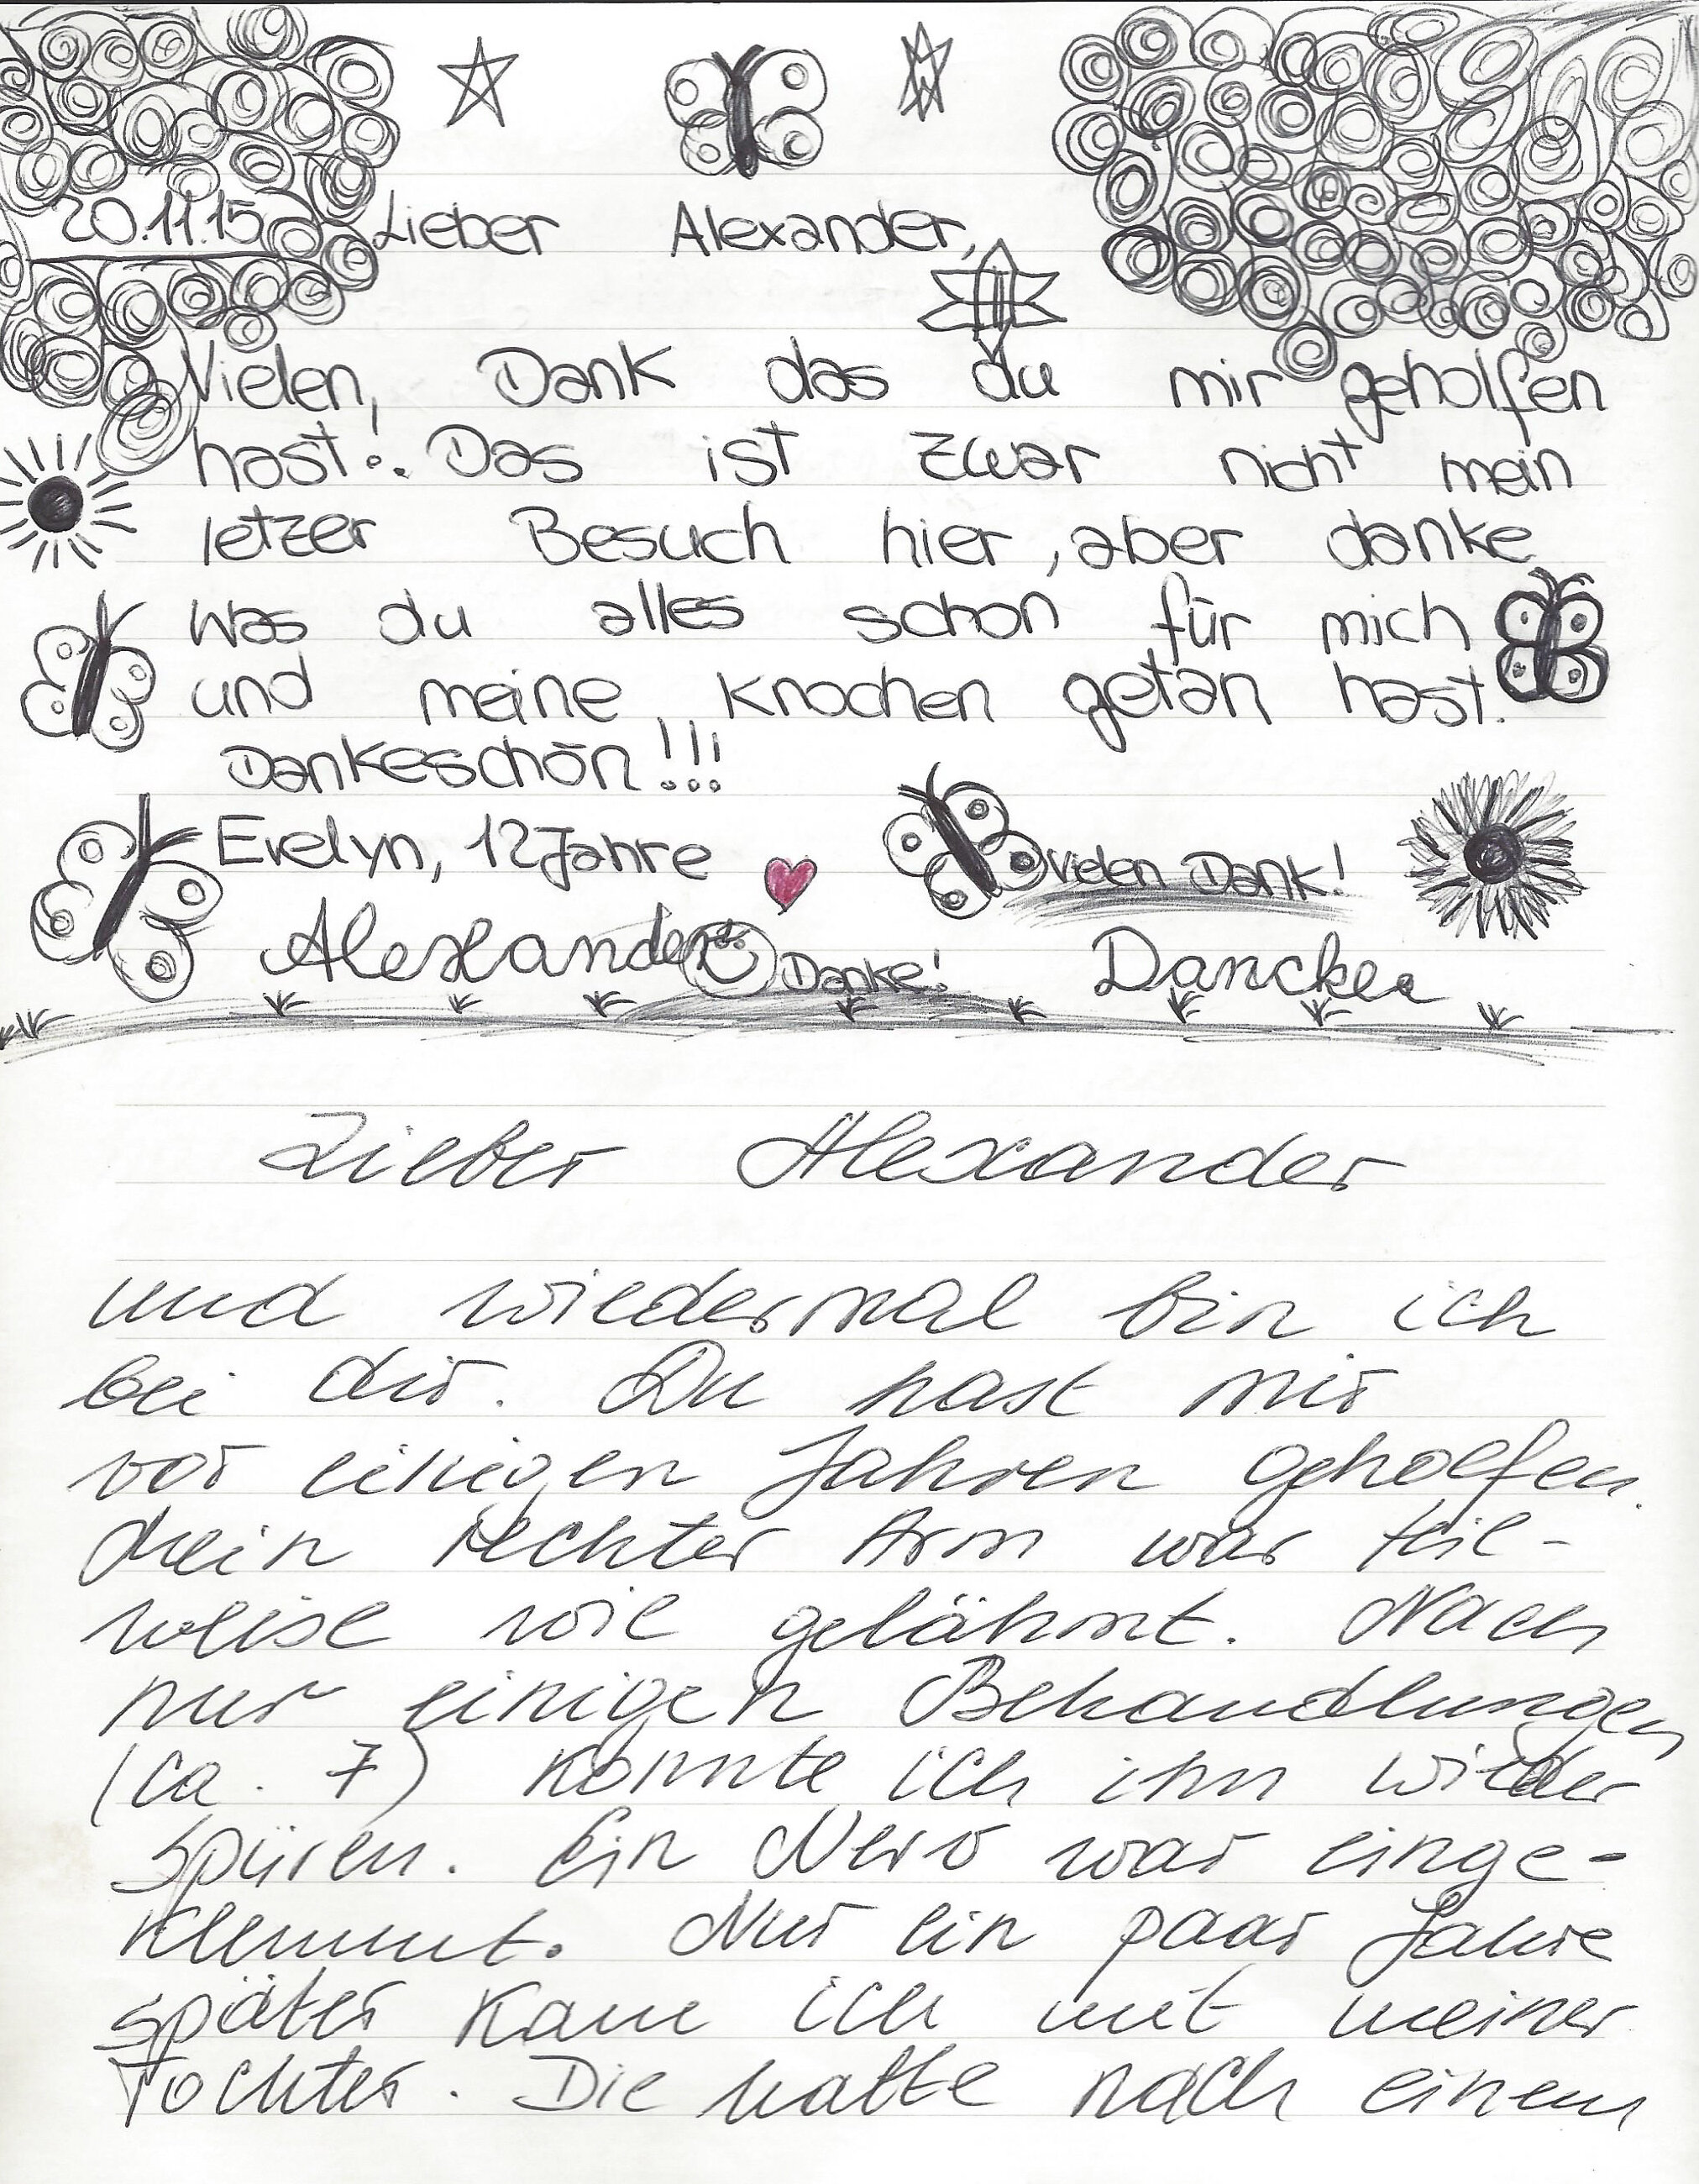 20.11.15 Lieber Alexander,
Vielen, Dank das du mir geholfen
hast!. Das ist zwar nicht mein
letzer Besuch hier, aber danke
was du alles schon für mich
und meine knochen getan hast.
Dankeschön!!!
Evelyn, 12 Jahre
Vielen Dank!
Alexander Danke! Dancker
Lieber Alexander
und wiedermal bin ich
bei dir. Du hast mir
vor einigen Jahren geholfen.
Mein rechter Arm war teil-
weise wie gelähmt. Nach
nur einigen Behandlungen
(ca. 7) konnte ich ihn wieder
spüren. Ein Nerv war einge-
klemmt. Nur ein paar Jahre
später kam ich mit meiner
Tochter. Die hatte nach einem